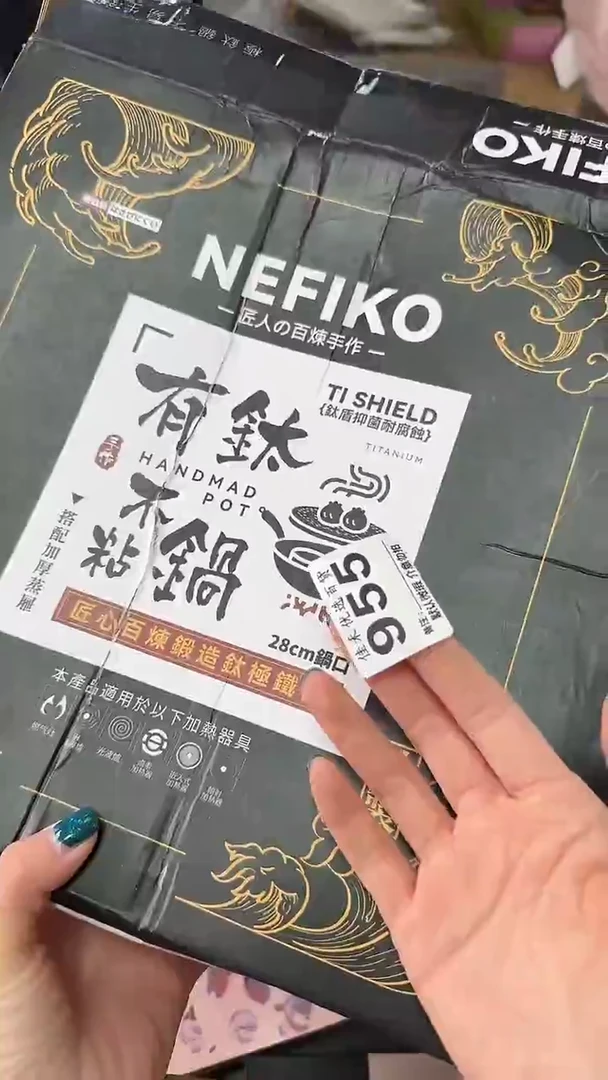 NEFIKO
NEFIKO
匠人の百煉手作
TI SHIELD
{鈦盾抑菌耐腐蝕}
TITANIUM
有鈦
HANDMAD
POT
不
粘鍋
手作
搭配加厚蒸屜
955
佳木优选百貨
匠心百煉鍛造鈦極鐵
28cm鍋口
本產品適用於以下加熱器具